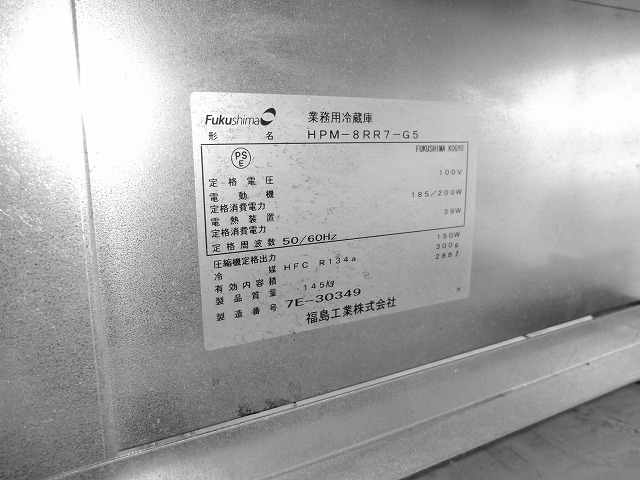 Fukushima 業務用冷蔵庫
形名 HPM-8RR7-G5
PS E FUKUSHIMA KOGYO
定格電圧 100V
電動機
定格消費電力 185/200W
電熱装置
定格消費電力 39W
定格周波数 50/60Hz
圧縮機定格出力 150W
冷媒 HFC R134a 300g
有効内容積 288ℓ
製品質量 145kg
製造番号 7E-30349
福島工業株式会社